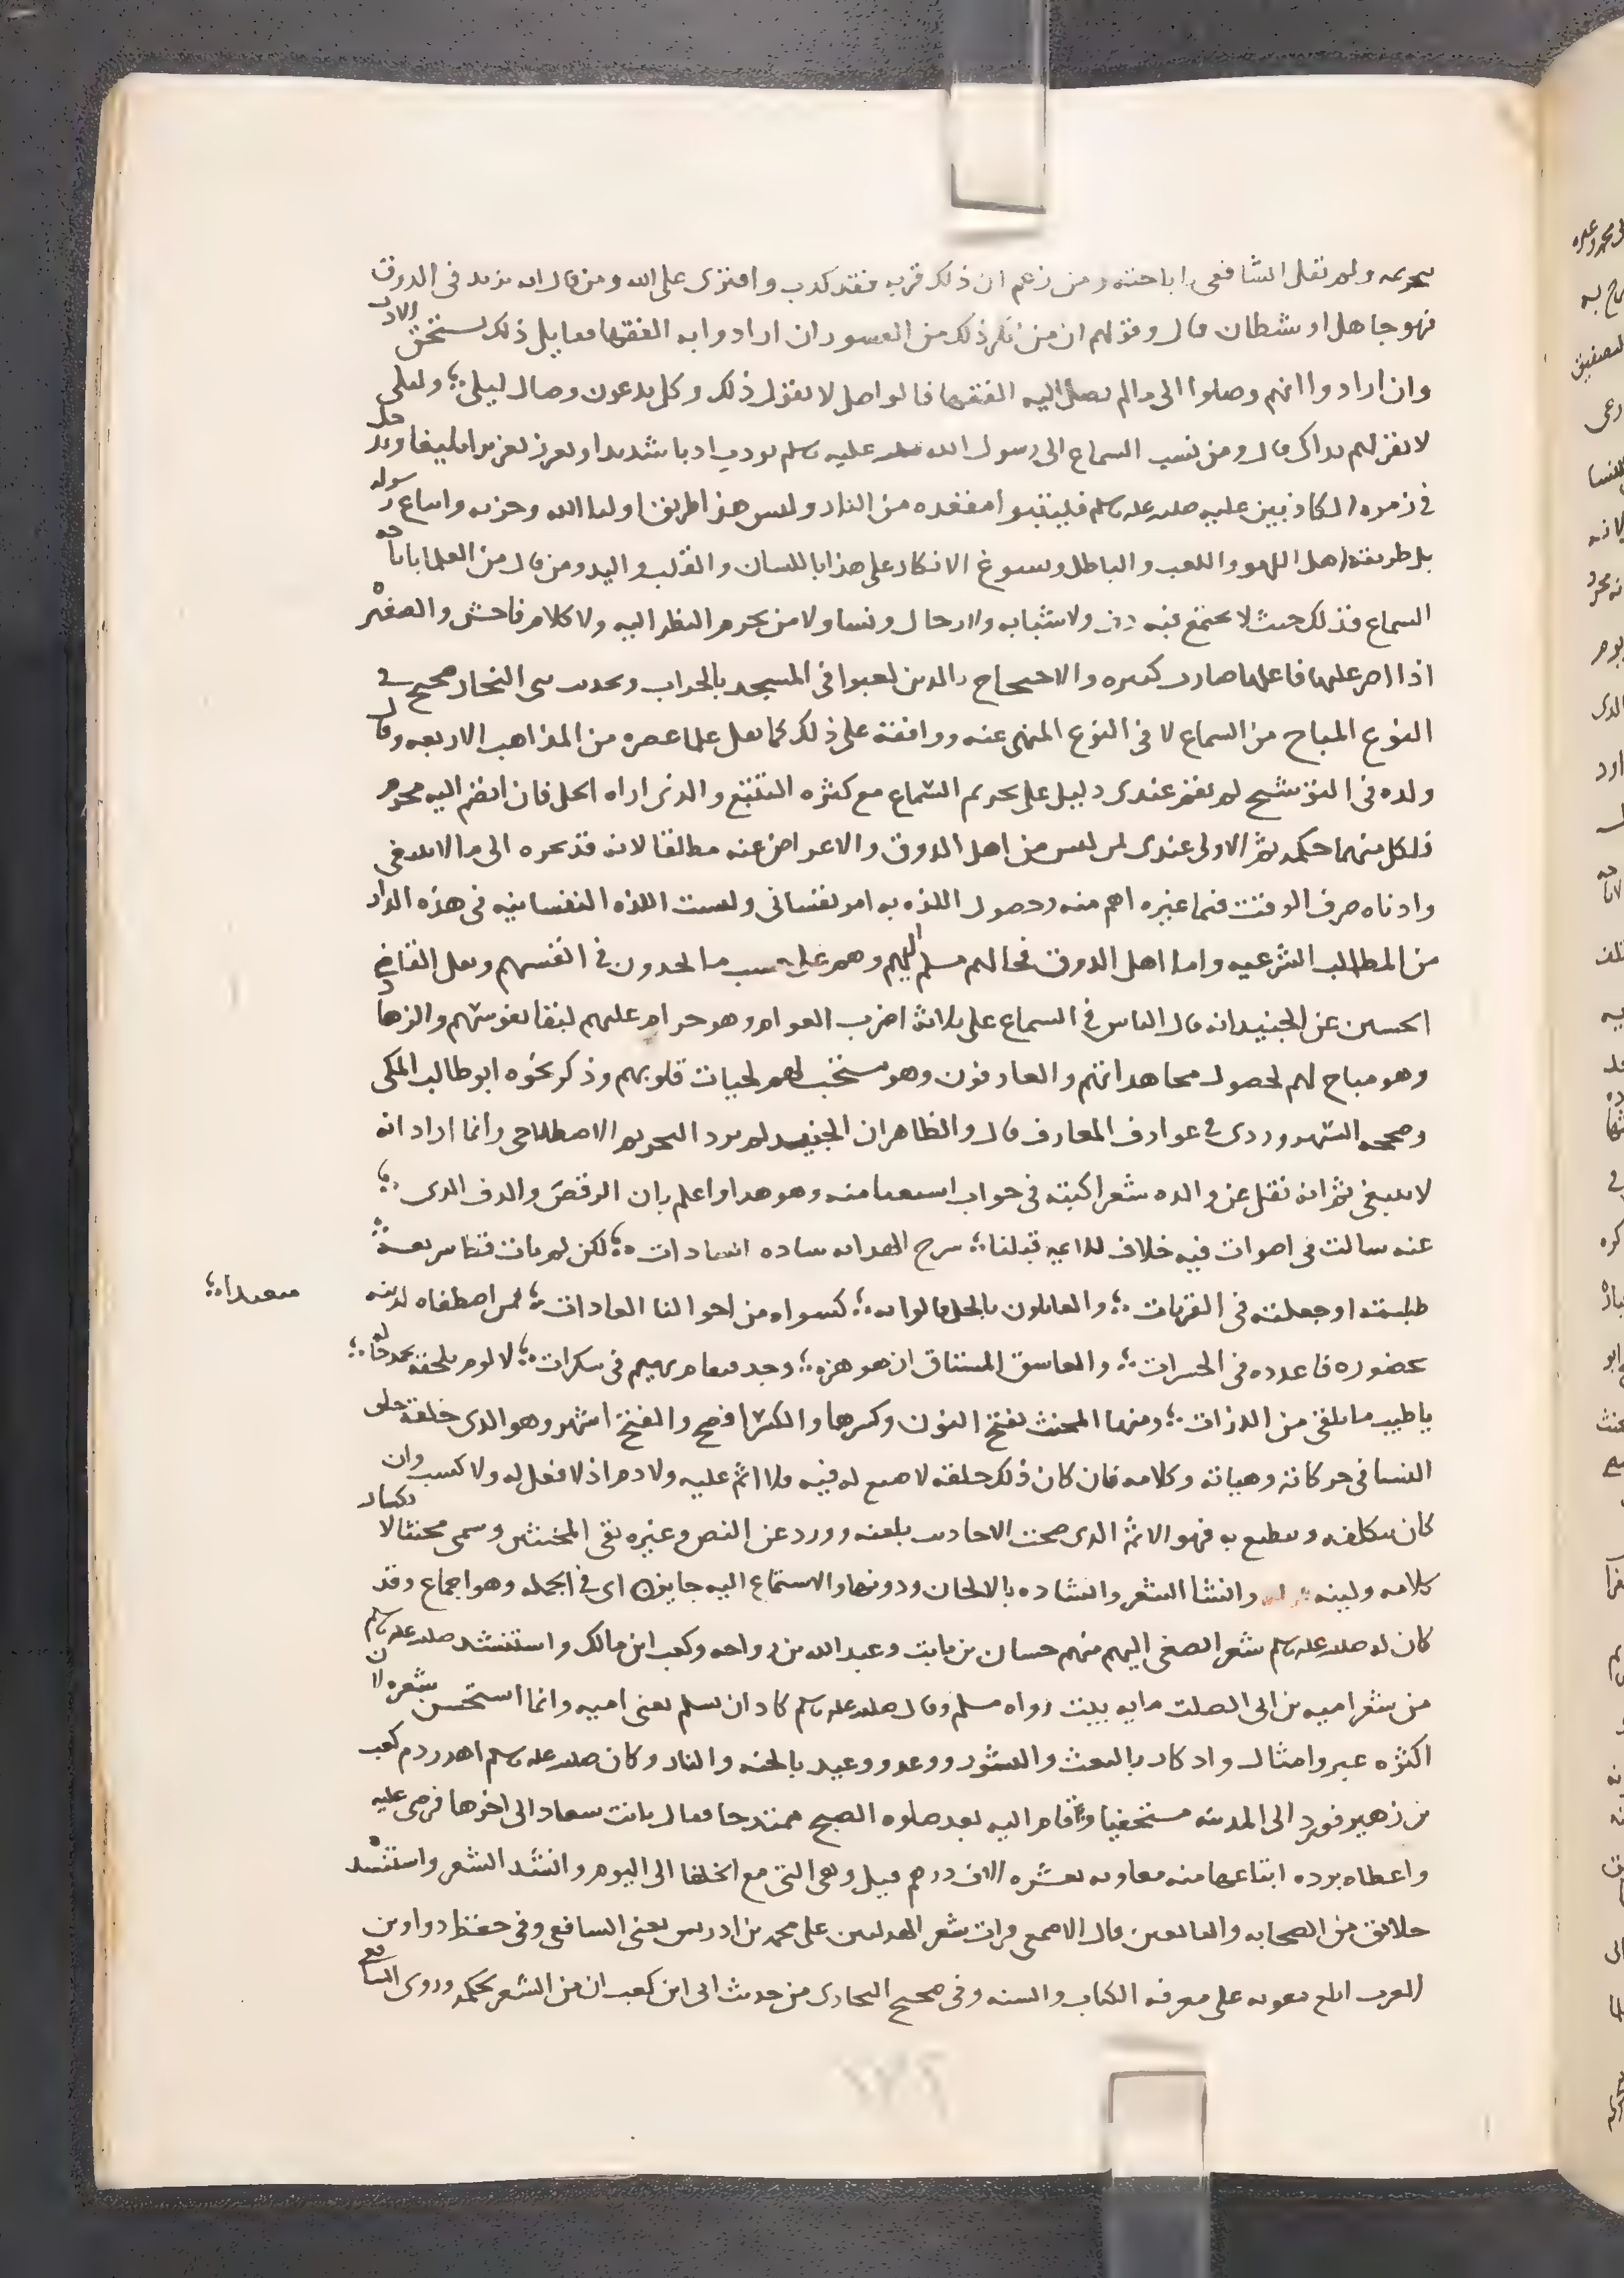 تحريمه ولم نقل الشافعي اباحته ومن زعم ان ذلك قربه فقد كذب وافترى على الله ومن قال انه يزيد في الذوق
فهو جاهل او شطان قال وقولهم ان من انكر ذلك من ان ارادوا به الفقها فقايل ذلك يستحق الادب
وان ارادوا انهم وصلوا الى ما لم يصل اليه الفقها فالواصل لا يقول ذلك وكل يدعون وصال ليلى ؛ وليلى
لا تقر لهم بذاك قال ومن نسب السماع الى رسول الله صلى الله عليه وسلم يودب ادبا شديدا ويعزر تعزيرا بليغا ويدخل
في زمره الكاذبين عليه صلى الله عليه وسلم فليتبوا مقعده من النار وليس هذا طريق اوليا الله وحزبه واتباع رسوله
بل طريقة اهل اللهو واللعب والباطل ويسوغ الانكار على هذا باللسان والقلب واليد ومن قال من العلما باباحه
السماع فذلك حيث لا يجتمع فيه دف ولا شبابه ولا رجال ونسا ولا من يحرم النظر اليه ولا كلام فاحش والصغيره
اذا اصر عليها فاعلها صارت كبيره والاحتجاج بالدين لعبوا في المسجد بالحراب وبحديث بني النجار صحيح في
النوع المباح من السماع لا في النوع المنهي عنه ووافقة على ذلك كما نقل علما عصره من المذاهب الاربعه وقال
ولده في التوشيح لم يقم عندي دليل على تحريم السماع مع كثره التتبع والذي اراه الحل فان انضم اليه محرم
فلكل منهما حكمه ثم الاولى عندي لمن ليس من اهل الذوق والاعراض عنه مطلقا لانه قد يجره الى ما لا ينبغي
وادناه صرف الوقت فيما غيره اهم منه وحصول اللذه به امر نفساني وليست اللذه النفسانيه في هذه الدار
من المطالب الشرعيه واما اهل الذوق فحالهم مسلم اليهم وهم على حسب ما يجدون في انفسهم ونقل القاضي
الحسين عن الجنيد انه قال الناس في السماع على ثلاثة اضرب العوام وهو حرام عليهم لبقا نفوسهم والزهاد
وهو مباح لهم لحصول مجاهداتهم والعارفون وهو مستحب لهم لحيات قلوبهم وذكر نحوه ابو طالب المكي
وصححه السهروردي في عوارف المعارف قال والظاهر ان الجنيد لم يرد التحريم الاصطلاحي وانما اراد انه
لا ينبغي ثم انه نقل عن والده شعرا كتبه في جواب استفتا منه وهو هذا واعلم بان الرقص والدف الذي ؛
عنه سالت في اصوات فيه خلاف للايمة قبلنا ؛ سرح الهدايه ساده السادات ؛ لكن لم يات قط شريعة
طلبته او جعلته في القربات ؛ والقايلون بالحل قالوا به ؛ كسواه من احوالنا العادات ؛ فمن اصطفاه لدينه متعبدا ؛
بحضوره فاعدده في الحسرات ؛ والعاشق المشتاق ان هو هزه ؛ وجد فقام يهيم في سكرات ؛ لا لوم يلحقه يحمد حاله ؛
يا طيب ما يلقى من اللذات ؛ ومنها المخنث بفتح النون وكسرها والكسر افصح والفتح اشهر وهو الذي خلقه خلق
النسا في حركاته وهياته وكلامه فان كان ذلك خلقه لا صنع له فيه فلا اثم عليه ولا ذم اذ لا فعل له ولا كسب وان
كان يتكلفه ويتطبع به فهو الاثم الذي صحت الاحاديث بلعنه وورد عن النص وغيره نفى المخنثين وسمي مخنثا لانكسار
كلامه ولينه وانشا الشعر وانشاده بالالحان ودونها والاستماع اليه جايزة اي في الجمله وهو اجماع وقد
كان له صلى الله عليه وسلم شعرا يصغي اليهم منهم حسان بن ثابت وعبد الله بن رواحه وكعب ابن مالك واستنشد صلى الله عليه وسلم
من شعر اميه بن ابي الصلت مايه بيت رواه مسلم وقال صلى الله عليه وسلم كاد ان يسلم يعني اميه وانما استحسن شعره لان
اكثره عبر وامثال واذكار بالبعث والنشور ووعد ووعيد بالجنه والنار وكان صلى الله عليه وسلم اهدر دم كعب
بن زهير فورد الى المدينه مستخفيا وقام اليه بعد صلوه الصبح ممتدحا فقال بانت سعاد الى اخرها فرضي عليه
واعطاه برده ابتاعها منه معاويه بعشره الاف درهم قيل وهي التي مع الخلفا الى اليوم وانشد الشعر واستنشده
خلائق من الصحابه والتابعين قال الاصمعي قرات شعر الهذليين على محمد بن ادريس يعني الشافعي وفي حفظ دواوين
العرب ابلغ معونه على معرفه الكتاب والسنه وفي صحيح البخاري من حديث ابي ابن كعب ان من الشعر لحكمه وروى الشافعي